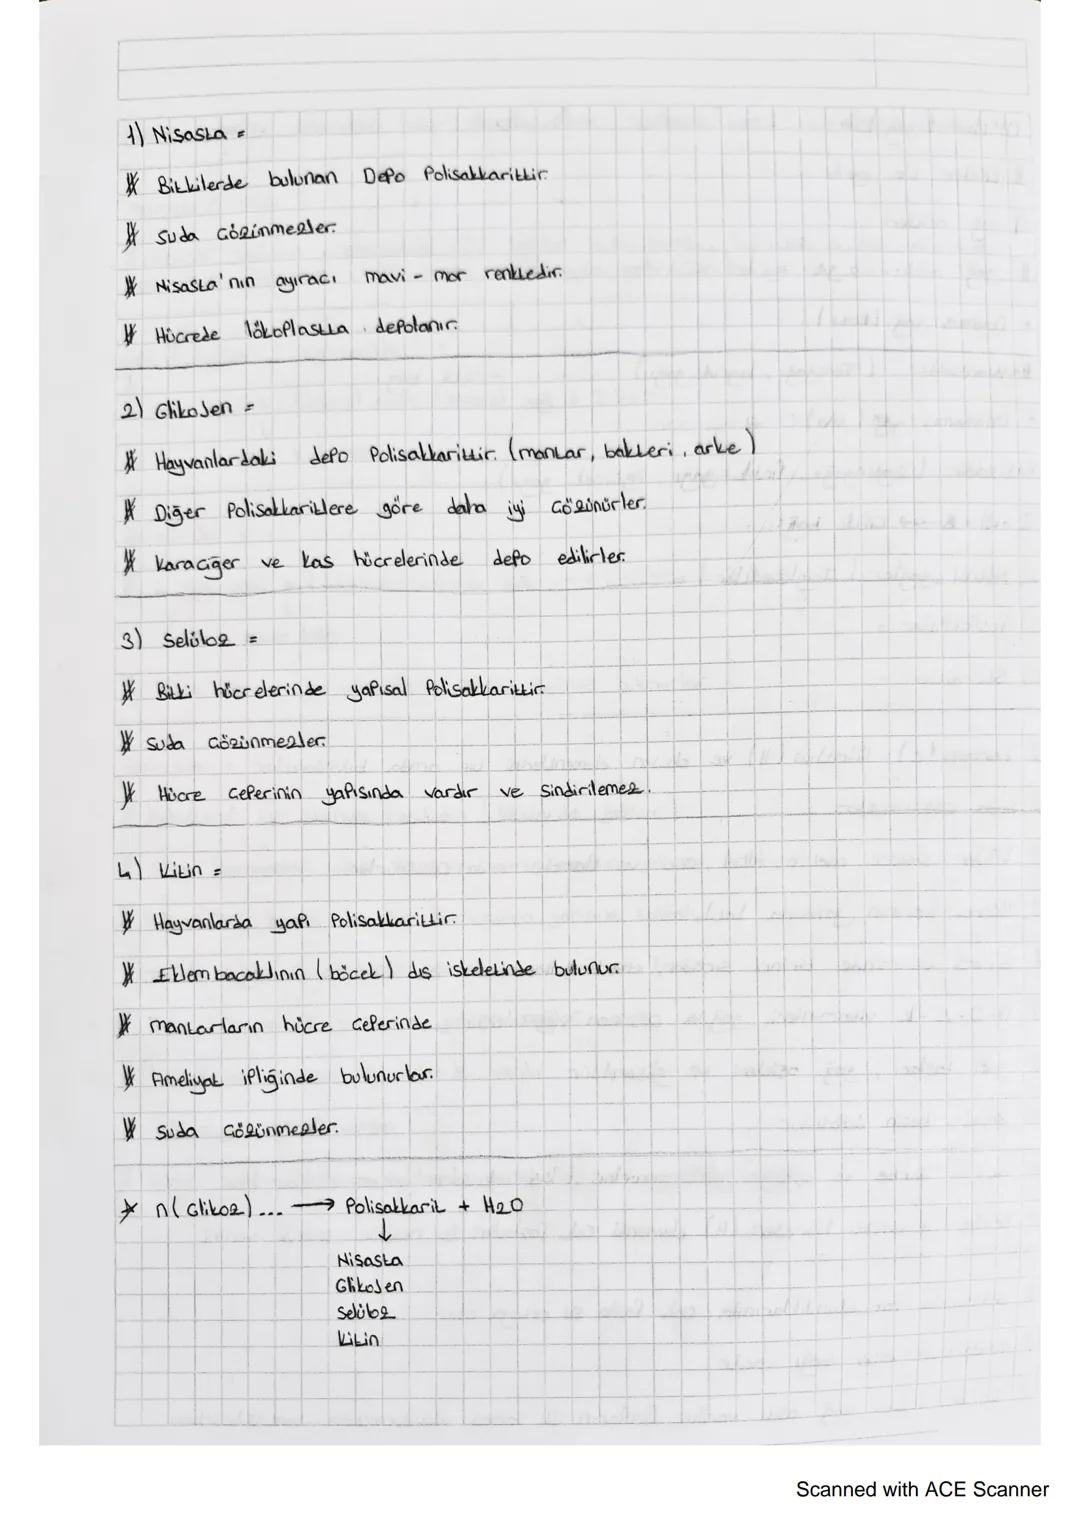 1) Nisasta =
* Bitkilerde bulunan Depo Polisakkarittir.
* Suda Cözünmezler.
* Nisasta'nın ayıracı mavi - mor renktedir.
* Hücrede lökoplastta depolanır.
2) Glikojen =
* Hayvanlardaki depo Polisakkarittir. (mantar, bakteri, arke)
* Diğer Polisakkaritlere göre daha iyi Cözünürler.
* karaciğer ve kas hücrelerinde depo edilirler.
3) Selüloz =
* Bitki hücrelerinde yapısal Polisakkarittir.
* Suda Cözünmezler.
* Hücre Ceperinin yapısında vardır ve Sindirilemez.
4) Kitin =
* Hayvanlarda yapı Polisakkarittir.
* Eklem bacaklının (böcek) dıs iskeletinde bulunur.
* mantarların hücre Ceperinde
* Ameliyat ipliğinde bulunurlar.
* Suda Cözünmezler.
* n(Glikoz)... → Polisakkarit + H2O
↓
Nisasta
Glikojen
Selüloz
Kitin
Scanned with ACE Scanner